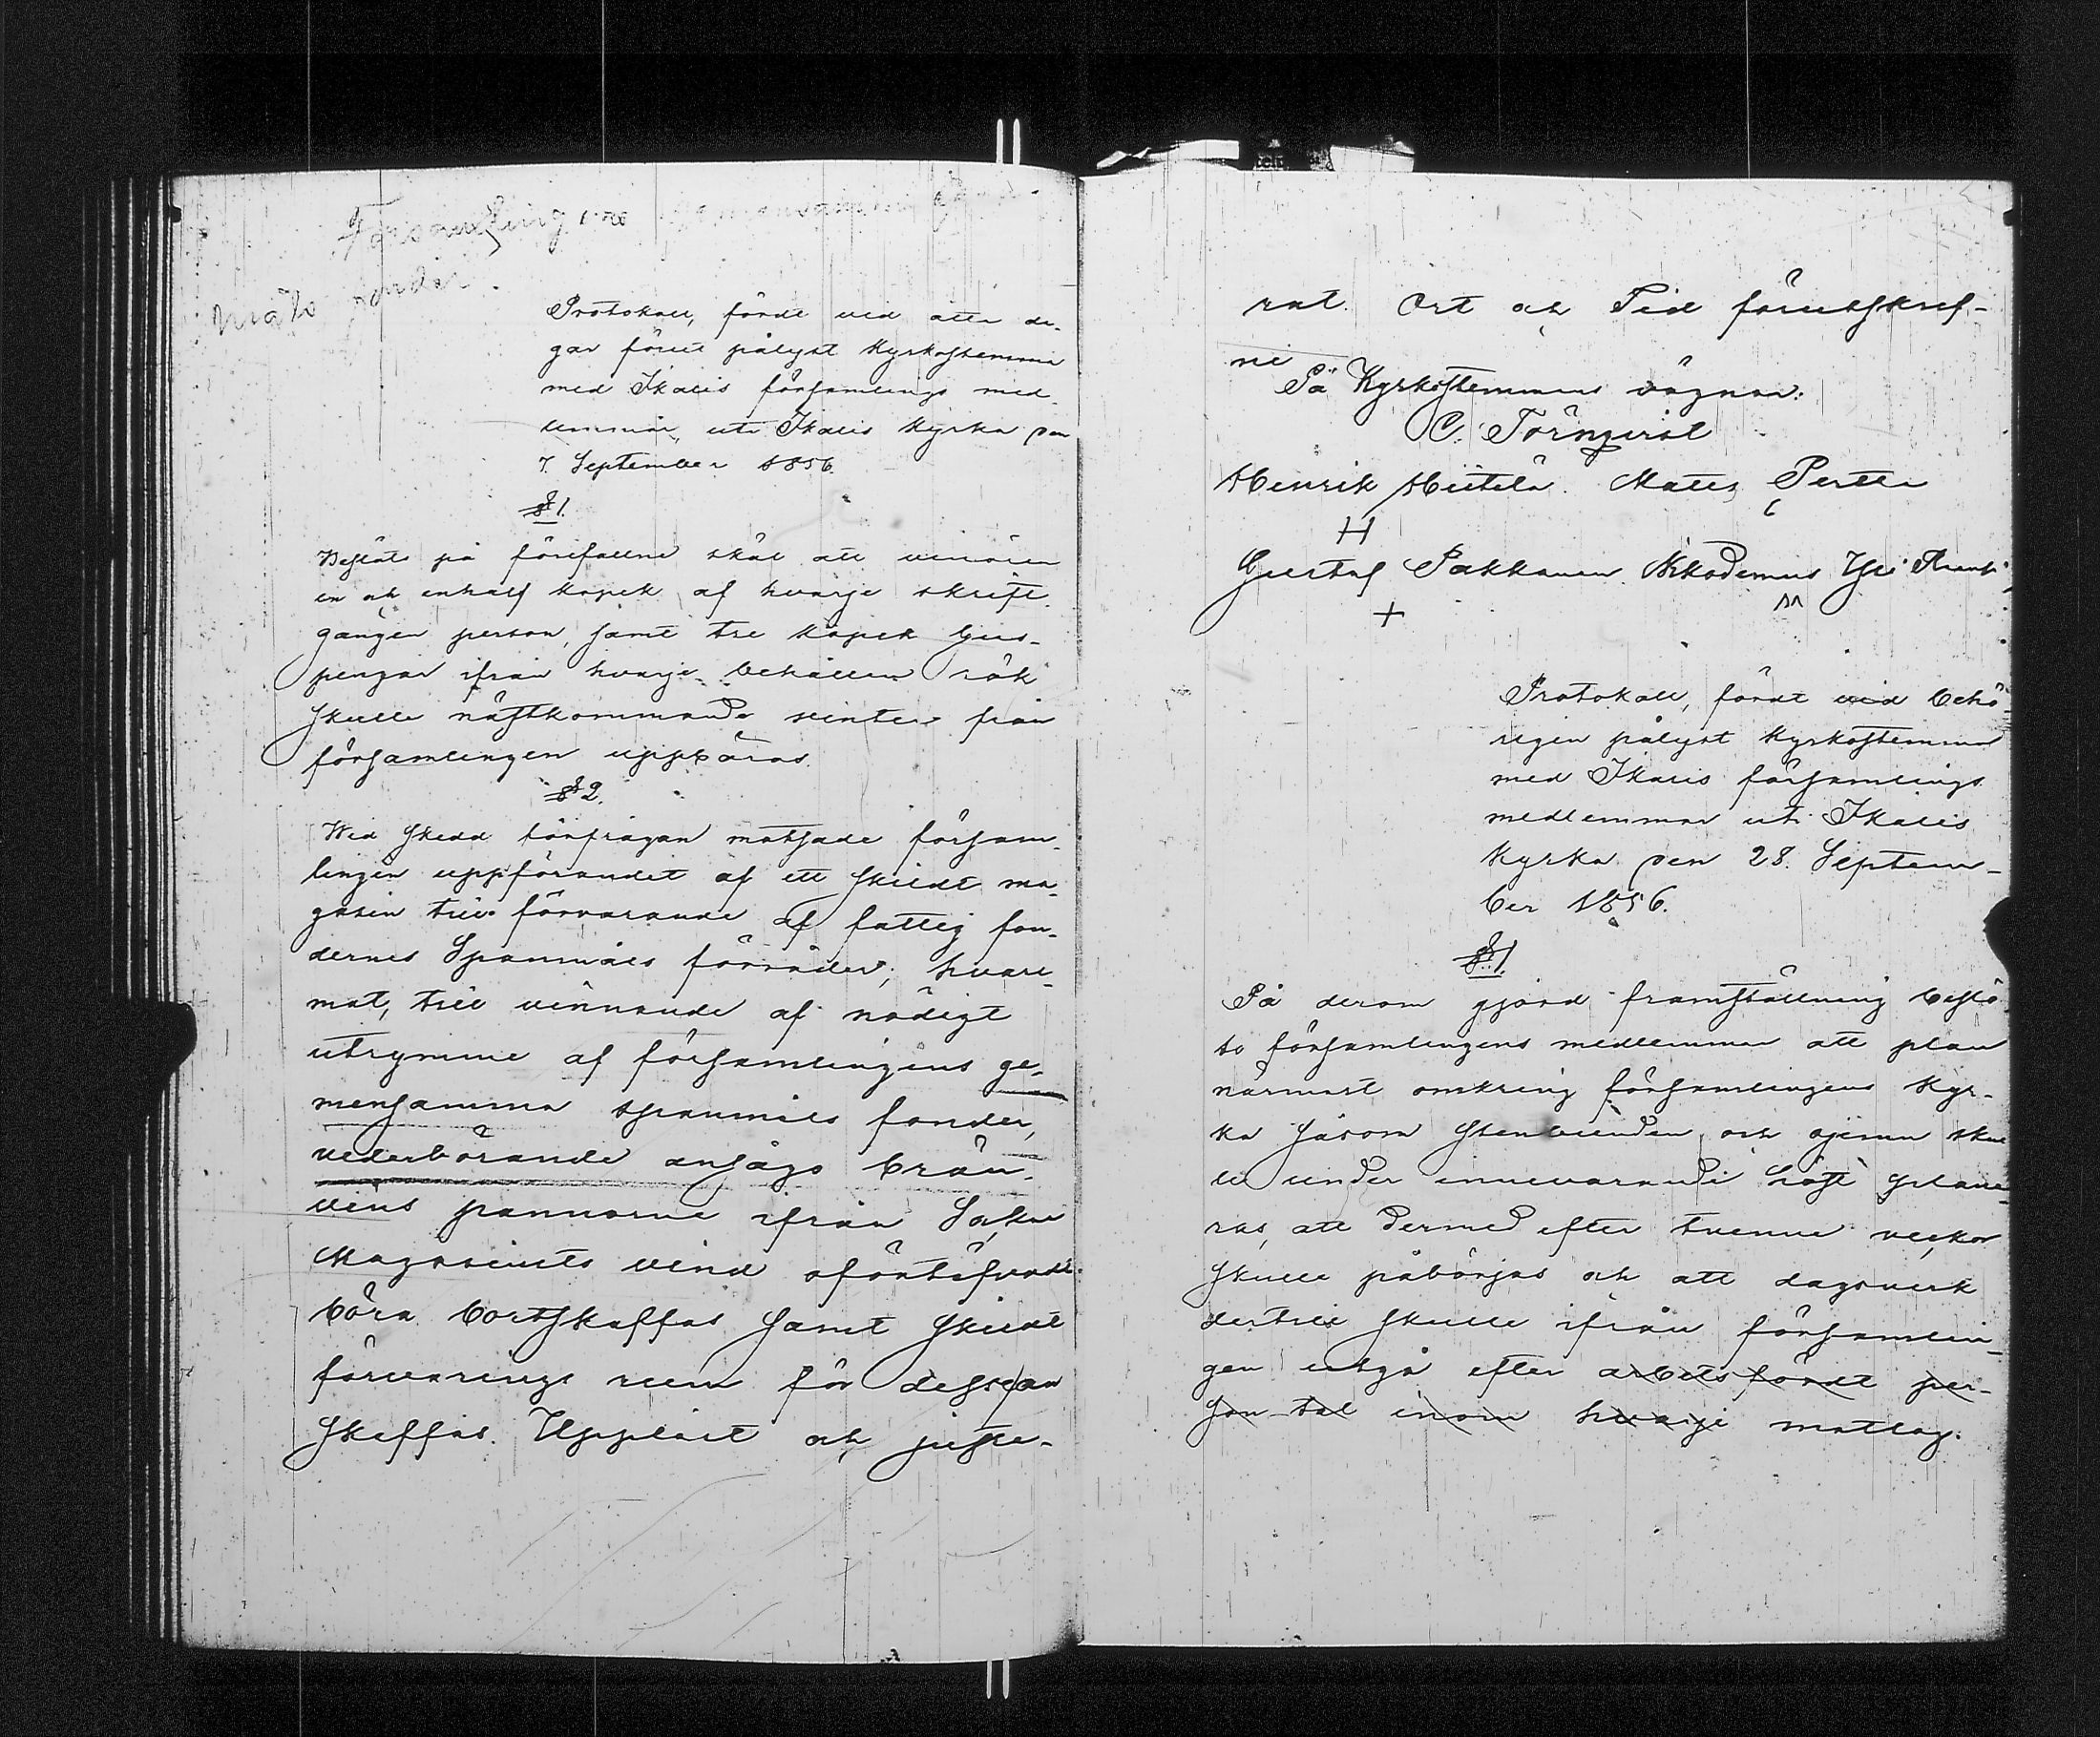 Församlingens gemensamma
måls fonder.
Protokoll, fördt vid åtta da-
gar förut pålyst Kyrkostemma
med Ikalis församlings med-
lemmar, uti Ikalis Kyrka den
7. September 1856.
§ 1.
Beslöts på förefallne skäl att
en och enhalf kopek af hvarje skrift-
gången person, samt tre kopek ljus-
pengar ifrån hvarje behållen rök
skulle nästkommande vinter från
församlingen uppbäras.
§ 2.
Wid skedd förfrågan motsade försam-
lingen uppförandet af ett skildt ma-
gasin till förvarande af fattig fon-
dernes Spanmåls förråder; hvare-
mot, till vinnande af nödigt
utrymme af församlingens ge-
mensamma spanmåls fonder,
vederbörande ansågo brän-
vins pannorne ifrån Sockne
Magasinets vind ofördröjeligen
böra bortskaffas samt skildt
förvarings rum för dessa
skaffas. Uppläst och juste-
rat. Ort och Tid förutskref-
ne
På Kyrkostemmans vägnar:
C. Törnqvist
Henrik Hiitelä. Matts Perttu
H
Gustaf Pakkanen. Nikodemus Yli
+
Protokoll, fördt vid behö-
rigen pålyst Kyrkostemma
med Ikalis församlings
medlemmar uti Ikalis
Kyrka den 28. Septem-
ber 1856.
§ 1.
På derom gjord framställning beslö-
to församlingens medlemmar att plan
närmast omkring församlingens Kyr-
ka såsom stenbunden och ojemn skul-
le under innevarande höst plane-
ras, att dermed efter tvenne veckor
skulle påbörjas och att dagsverk
dertill skulle ifrån församlin-
gen utgå efter arbetsfördt per-
son tal inom hvarje matlag.